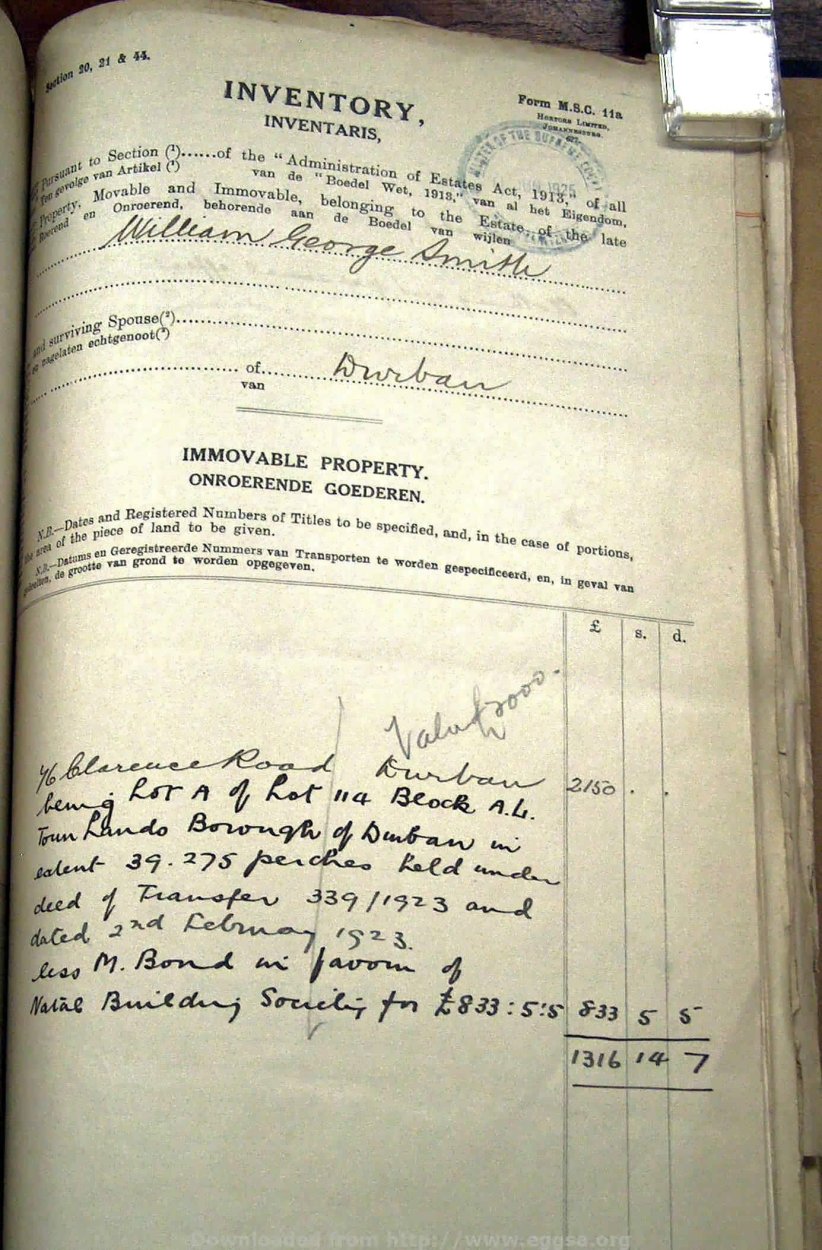 Section 20, 21 & 44.
Form M.S.C. 11a
HORTORS LIMITED,
JOHANNESBURG.
INVENTORY,
INVENTARIS,
MASTER OF THE SUPREME COURT
1925
Pursuant to Section (¹)......of the "Administration of Estates Act, 1913," of all
Ten gevolge van Artikel (¹) van de "Boedel Wet, 1913," van al het Eigendom,
Property, Movable and Immovable, belonging to the Estate of the late
Roerend en Onroerend, behorende aan de Boedel van wijlen
William George Smith
and surviving Spouse(²)
en nagelaten echtgenoot(²)
of Durban
van
IMMOVABLE PROPERTY.
ONROERENDE GOEDEREN.
N.B.—Dates and Registered Numbers of Titles to be specified, and, in the case of portions,
the area of the piece of land to be given.
N.B.—Datums en Geregistreerde Nummers van Transporten te worden gespecificeerd, en, in geval van
gedeelten, de grootte van grond te worden opgegeven.
£ s. d.
Value £2000.
76 Clarence Road Durban 2150 . .
being Lot A of Lot 114 Block A.L.
Town Lands Borough of Durban in
extent 39.275 perches held under
deed of Transfer 339/1923 and
dated 2nd February 1923.
less M. Bond in favour of
Natal Building Society for £833:5:5 833 5 5
1316 14 7
Downloaded from http://www.eggsa.org